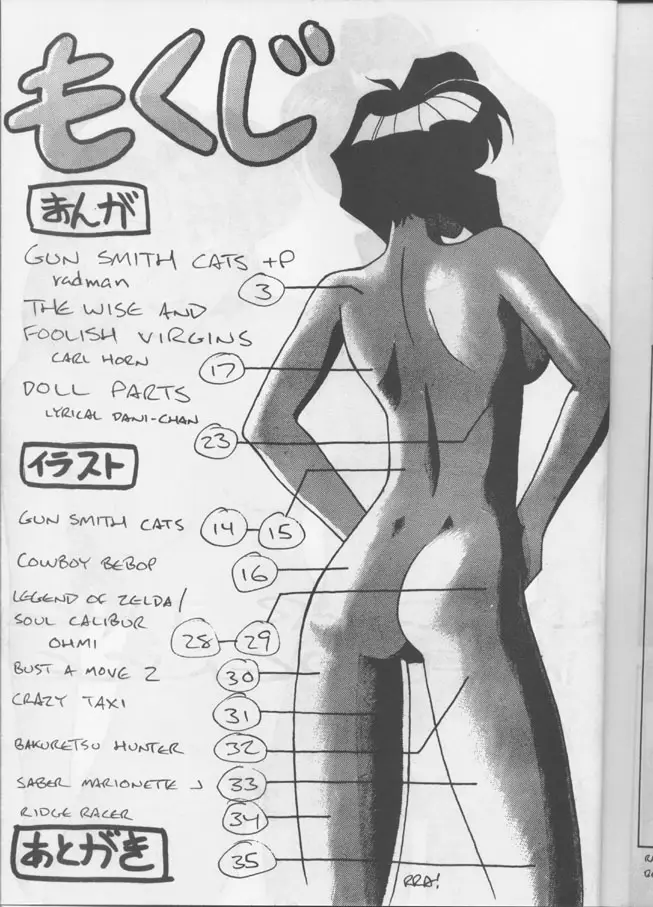 もくじ
まんが
GUN SMITH CATS +P
radman
3
THE WISE AND
FOOLISH VIRGINS
CARL HORN
17
DOLL PARTS
LYRICAL DANI-CHAN
23
イラスト
GUN SMITH CATS 14-15
COWBOY BEBOP 16
LEGEND OF ZELDA/
SOUL CALIBUR
OHMI 28-29
BUST A MOVE 2 30
CRAZY TAXI 31
BAKURETSU HUNTER 32
SABER MARIONETTE J 33
RIDGE RACER 34
あとがき 35
RRA!